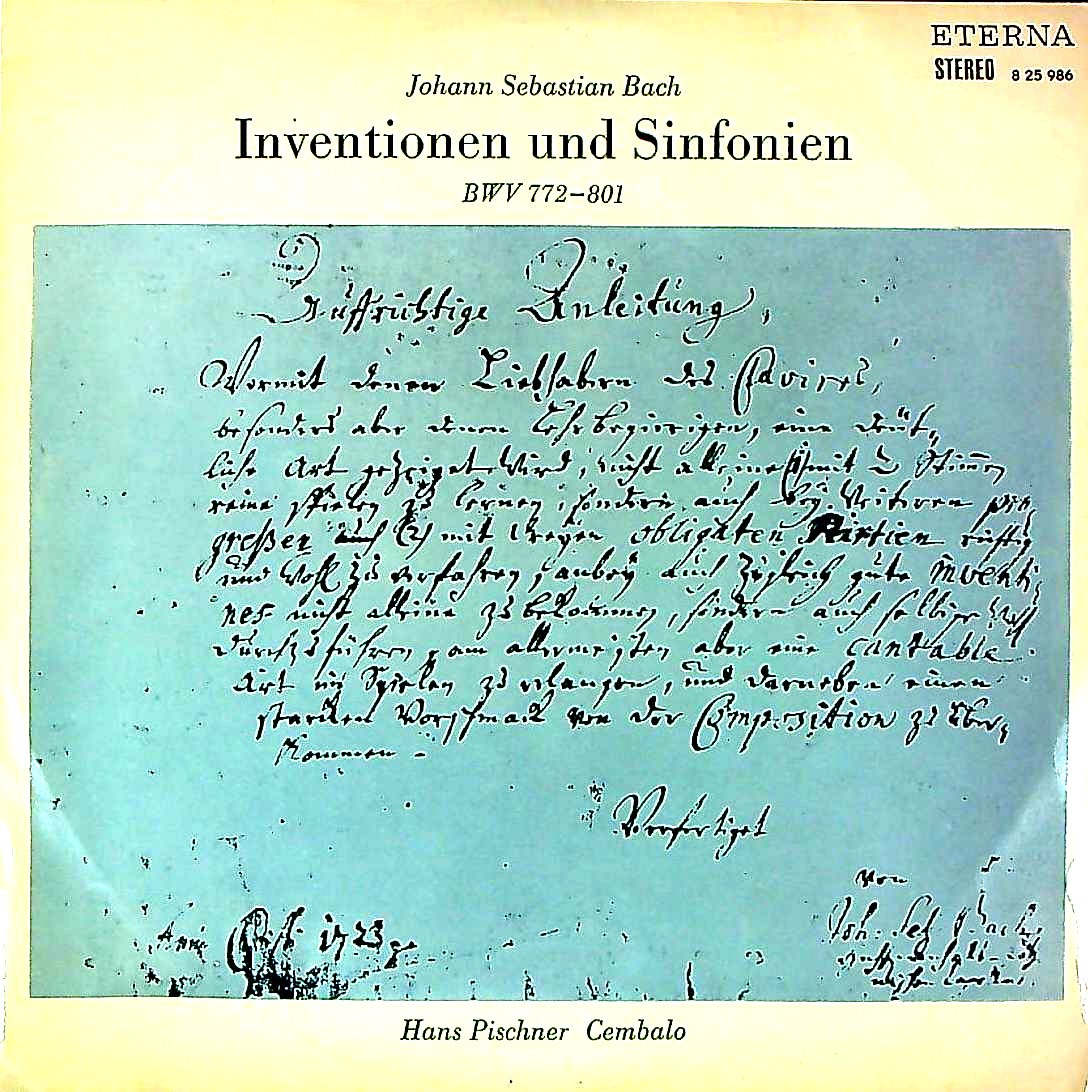 ETERNA
STEREO 8 25 986
Johann Sebastian Bach
Inventionen und Sinfonien
BWV 772–801
Auffrichtige Anleitung,
Wormit denen Liebhabern des Clavires,
besonders aber denen Lehrbegierigen, eine deüt-
liche Art gezeiget wird, nicht alleine (1) mit 2 Stimen
reine spielen zu lernen, sondern auch bey weiteren pro-
greßen auch (2) mit dreyen obligaten Partien richtig
und wohl zu verfahren, anbey auch zugleich gute inventi-
ones nicht alleine zu bekommen, sondern auch selbige wohl
durchzuführen, am allermeisten aber eine cantable
Art im Spielen zu erlangen, und darneben einen
starcken Vorschmack von der Composition zu über-
kommen.
Verfertiget
von
Joh. Seb. Bach
Anno Christi 1723.
Hans Pischner Cembalo